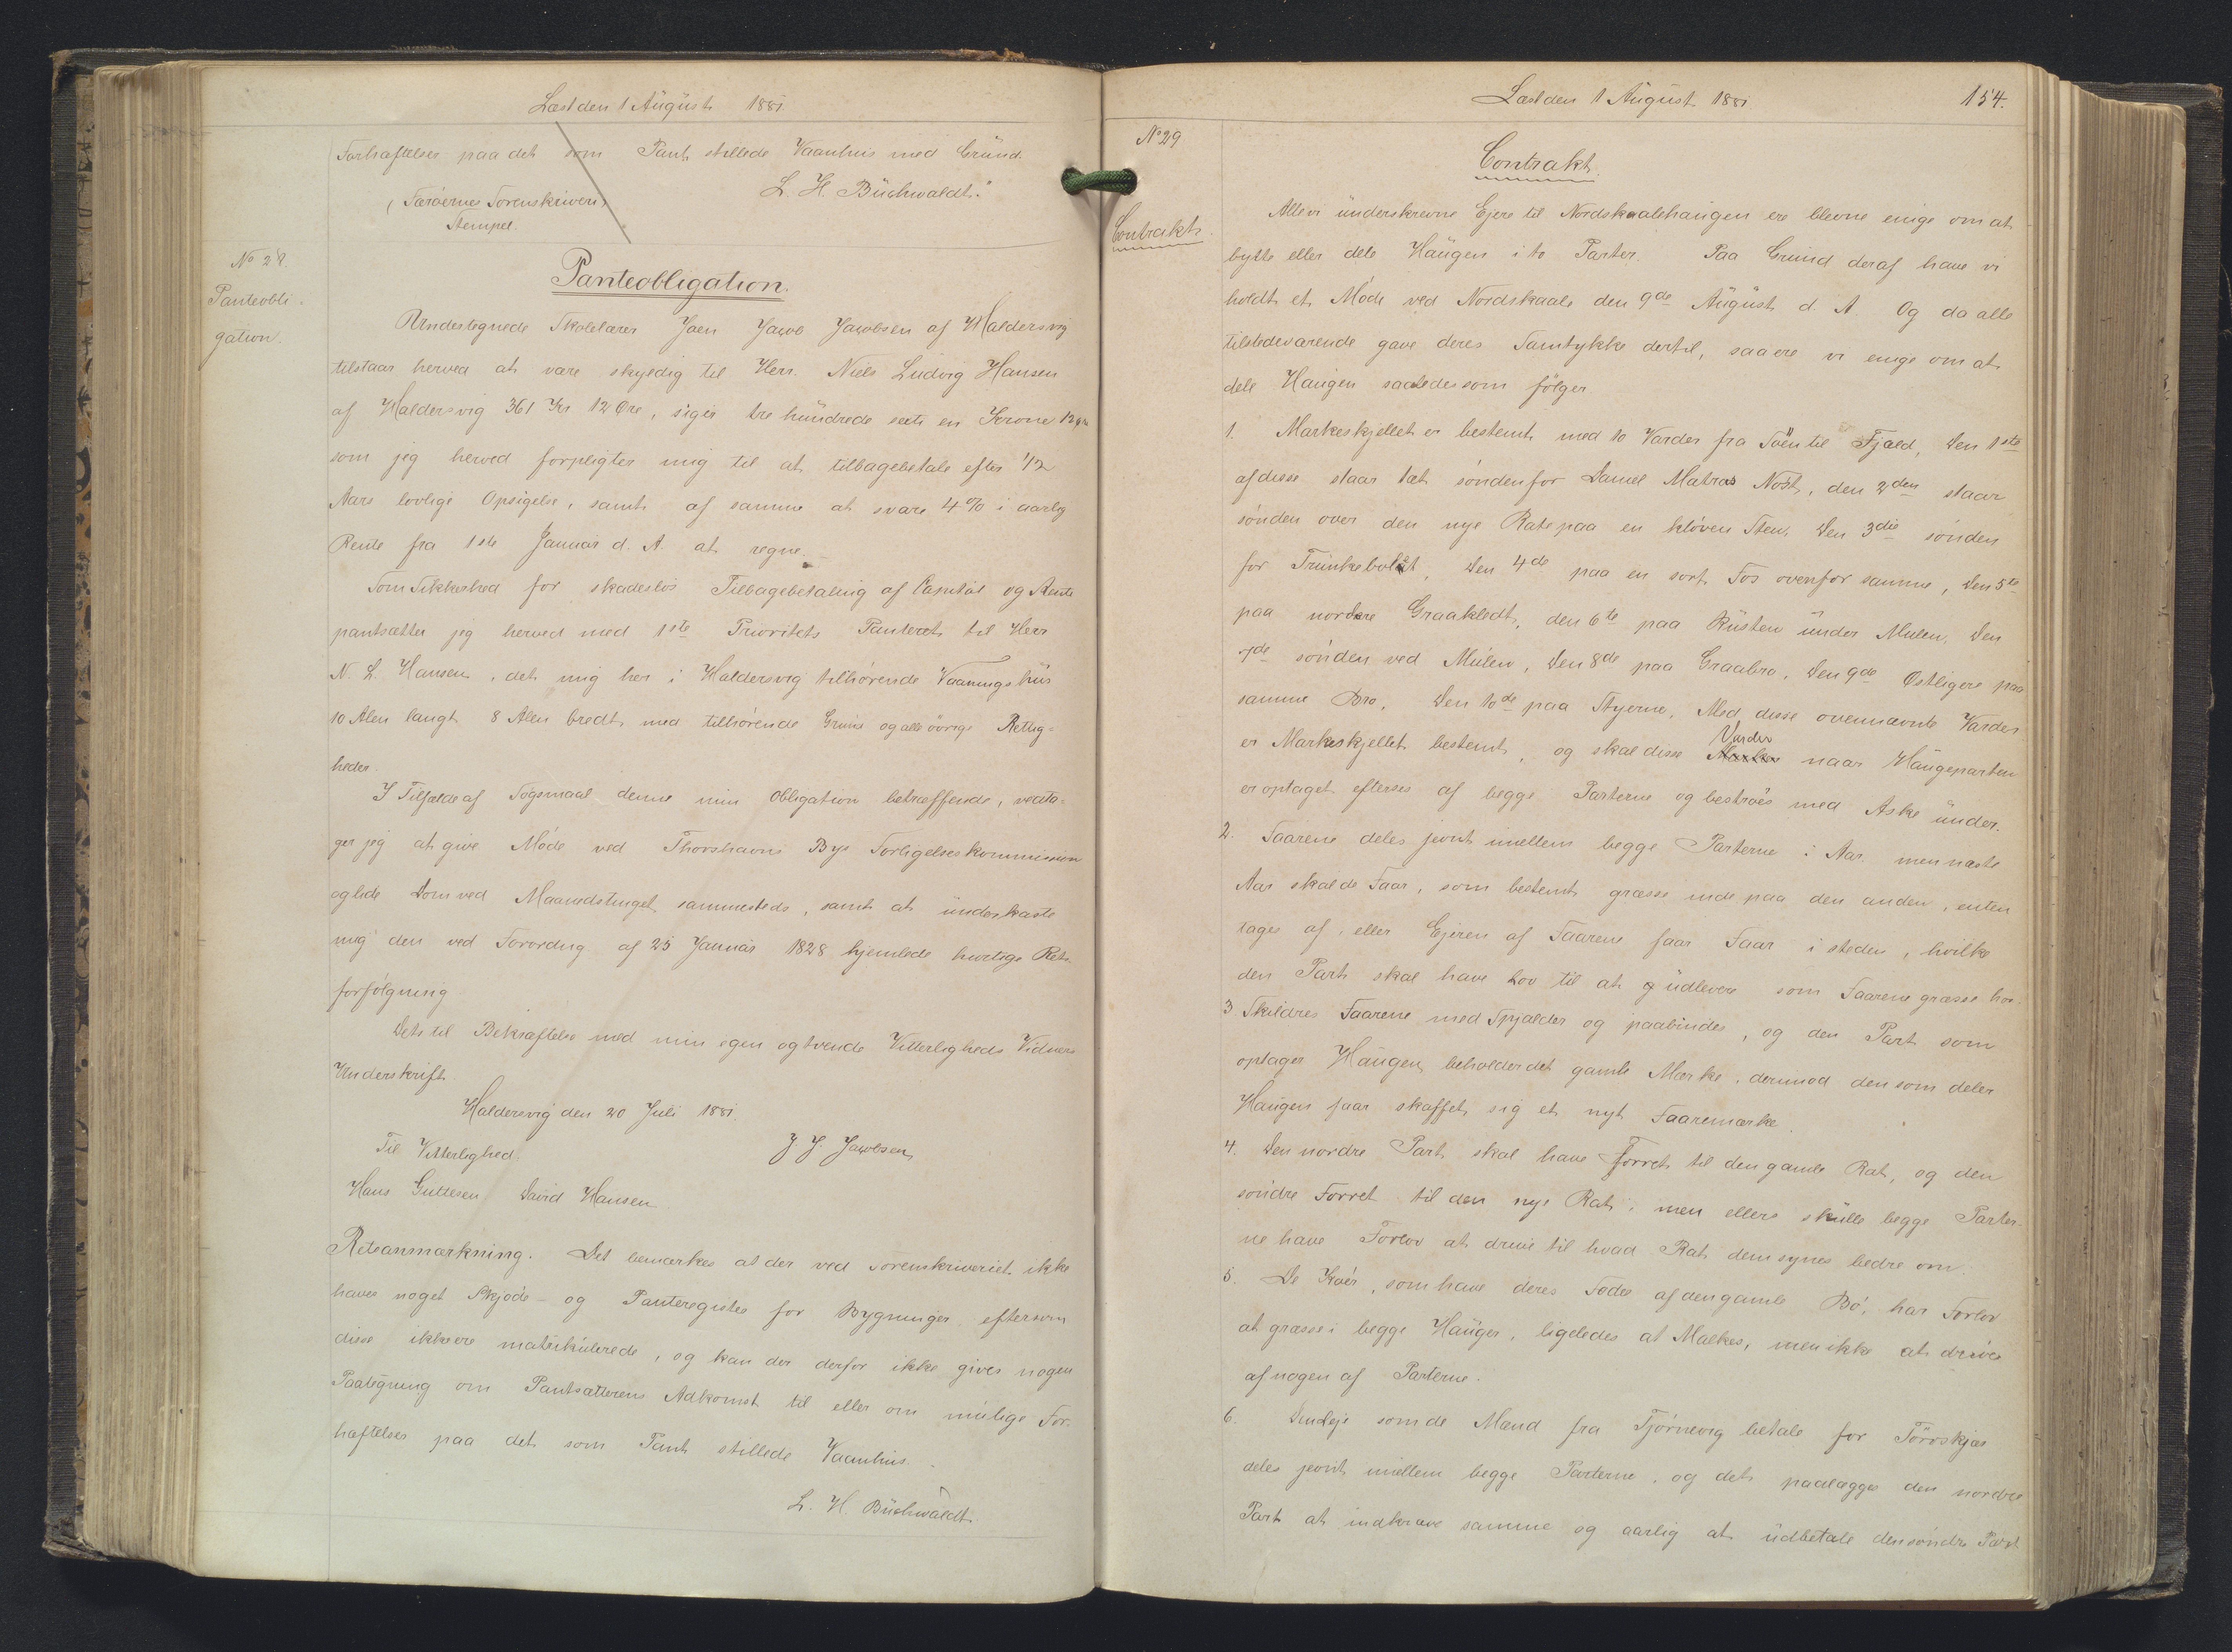 Læst den 1 August 1881.
Forhæftelser paa det som Pant stillede Vaanhus med Grund.
L. H. Buchwaldt."
(Færøernes Sorenskriveri,
Stempel.
No 28.
Panteobli-
gation.
Panteobligation.
Undertegnede Skolelærer Joen Jacob Jacobsen af Haldersvig
tilstaar herved at være skyldig til Herr. Niels Ludvig Hansen
af Haldersvig 361 Kr 12 Øre, siger tre hundrede seeti en Krone 12 Øre
som jeg herved forpligter mig til at tilbagebetale efter 1/2
Aars lovlige Opsigelse, samt af samme at svare 4 % i aarlig
Rente fra 1ste Januar d. A. at regne.
Som Sikkerhed for skadesløs Tilbagebetaling af Capital og Rente
pantsætter jeg herved med 1ste Prioritets Panteret til Herr
N. L. Hansen, det mig her i Haldersvig tilhørende Vaaningshus
10 Alen langt 8 Alen bredt med tilhørende Grund og alle øvrige Rettig-
heder.
I Tilfælde af Søgsmaal denne min Obligation betræffende, vedta-
ger jeg at give Møde ved Thorshavns Bys Forligelseskommission
og lide Dom ved Maanedstinget sammesteds, samt at underkaste
mig den ved Forordng af 25 Januar 1828 hjemlede hurtige Rets-
forfølgning.
Dets til Bekræftelse med min egen og tvende Vitterligheds Vidners
Underskrift.
Haldersvig den 20 Juli 1881.
Til Vitterlighed.
J J. Jacobsen
Hans Guttesen David Hansen
Retsanmærkning. Det bemærkes at der ved Sorenskriveriet ikke
haves noget Skjøde- og Panteregister for Bygninger eftersom
disse ikke ere matrikulerede, og kan der derfor ikke gives nogen
Paategning om Pantsætterens Adkomst til eller om mulige For-
hæftelser paa det som Pant stillede Vaanhus.
L. H. Buchwaldt.
Læst den 1 August 1881
154.
No 29
Contrakt.
Contrakt.
Alle vi underskrevne Ejere til Nordskaalehaugen ere blevne enige om at
bytte eller dele Haugen i to Parter. Paa Grund deraf have vi
holdt et Møde ved Nordskaale den 9de August d. A. Og da alle
tilstedeværende gave deres Samtykke dertil, saa ere vi enige om at
dele Haugen saaledes som følger.
1. Markeskjellet er bestemt med 10 Varder fra Søen til Fjæld, Den 1ste
af disse staar tæt søndenfor Daniel Matras Nøst, den 2den staar
sønden over den nye Rat paa en kløven Sten, Den 3die sønden
for Trunkebolæt, Den 4de paa en sort Fos ovenfor samme, Den 5te
paa nordre Graakledt, den 6te paa Rusten under Mulen, Den
7de sønden ved Mulen, Den 8de paa Graabro, Den 9de Østligere paa
samme Bro, Den 10de paa Styerne, Med disse ovennævnte Varder
er Markeskjellet bestemt, og skal disse Varder naar Haugeparten
er optaget efterses af begge Parterne og bestrøes med Aske under.
2. Faarene deles jevnt imellem begge Parterne i Aar. men næste
Aar skal de Faar, som bestemt græsse inde paa den anden, enten
tages af, eller Ejeren af Faarene faar Faar i steden, hvilke
den Part skal have Lov til at udlevere som Faarene græsse hos.
3 Skildres Faarene med Spjalder og paabindes, og den Part som
optager Haugen beholder det gamle Mærke, derimod den som deler
Haugen faar skaffet sig et nyt Faaremærke.
4. Den nordre Part skal have Forret til den gamle Rat, og den
søndre Forret til den nye Rat, men ellers skulle begge Parter-
ne have Forlov at drive til hvad Rat dem synes bedre om.
5. De Køer, som have deres Foder af den gamle Bø, har Forlov
at græsse i begge Hauger, ligeledes at Malkes, men ikke at drives
af nogen af Parterne.
6. Den Leje som de Mænd fra Tjørnevig betale for Tørvskjær
deles jevnt imellem begge Parterne, og det paalægges den nordre
Part at indkræve samme og aarlig at udbetale den søndre Part